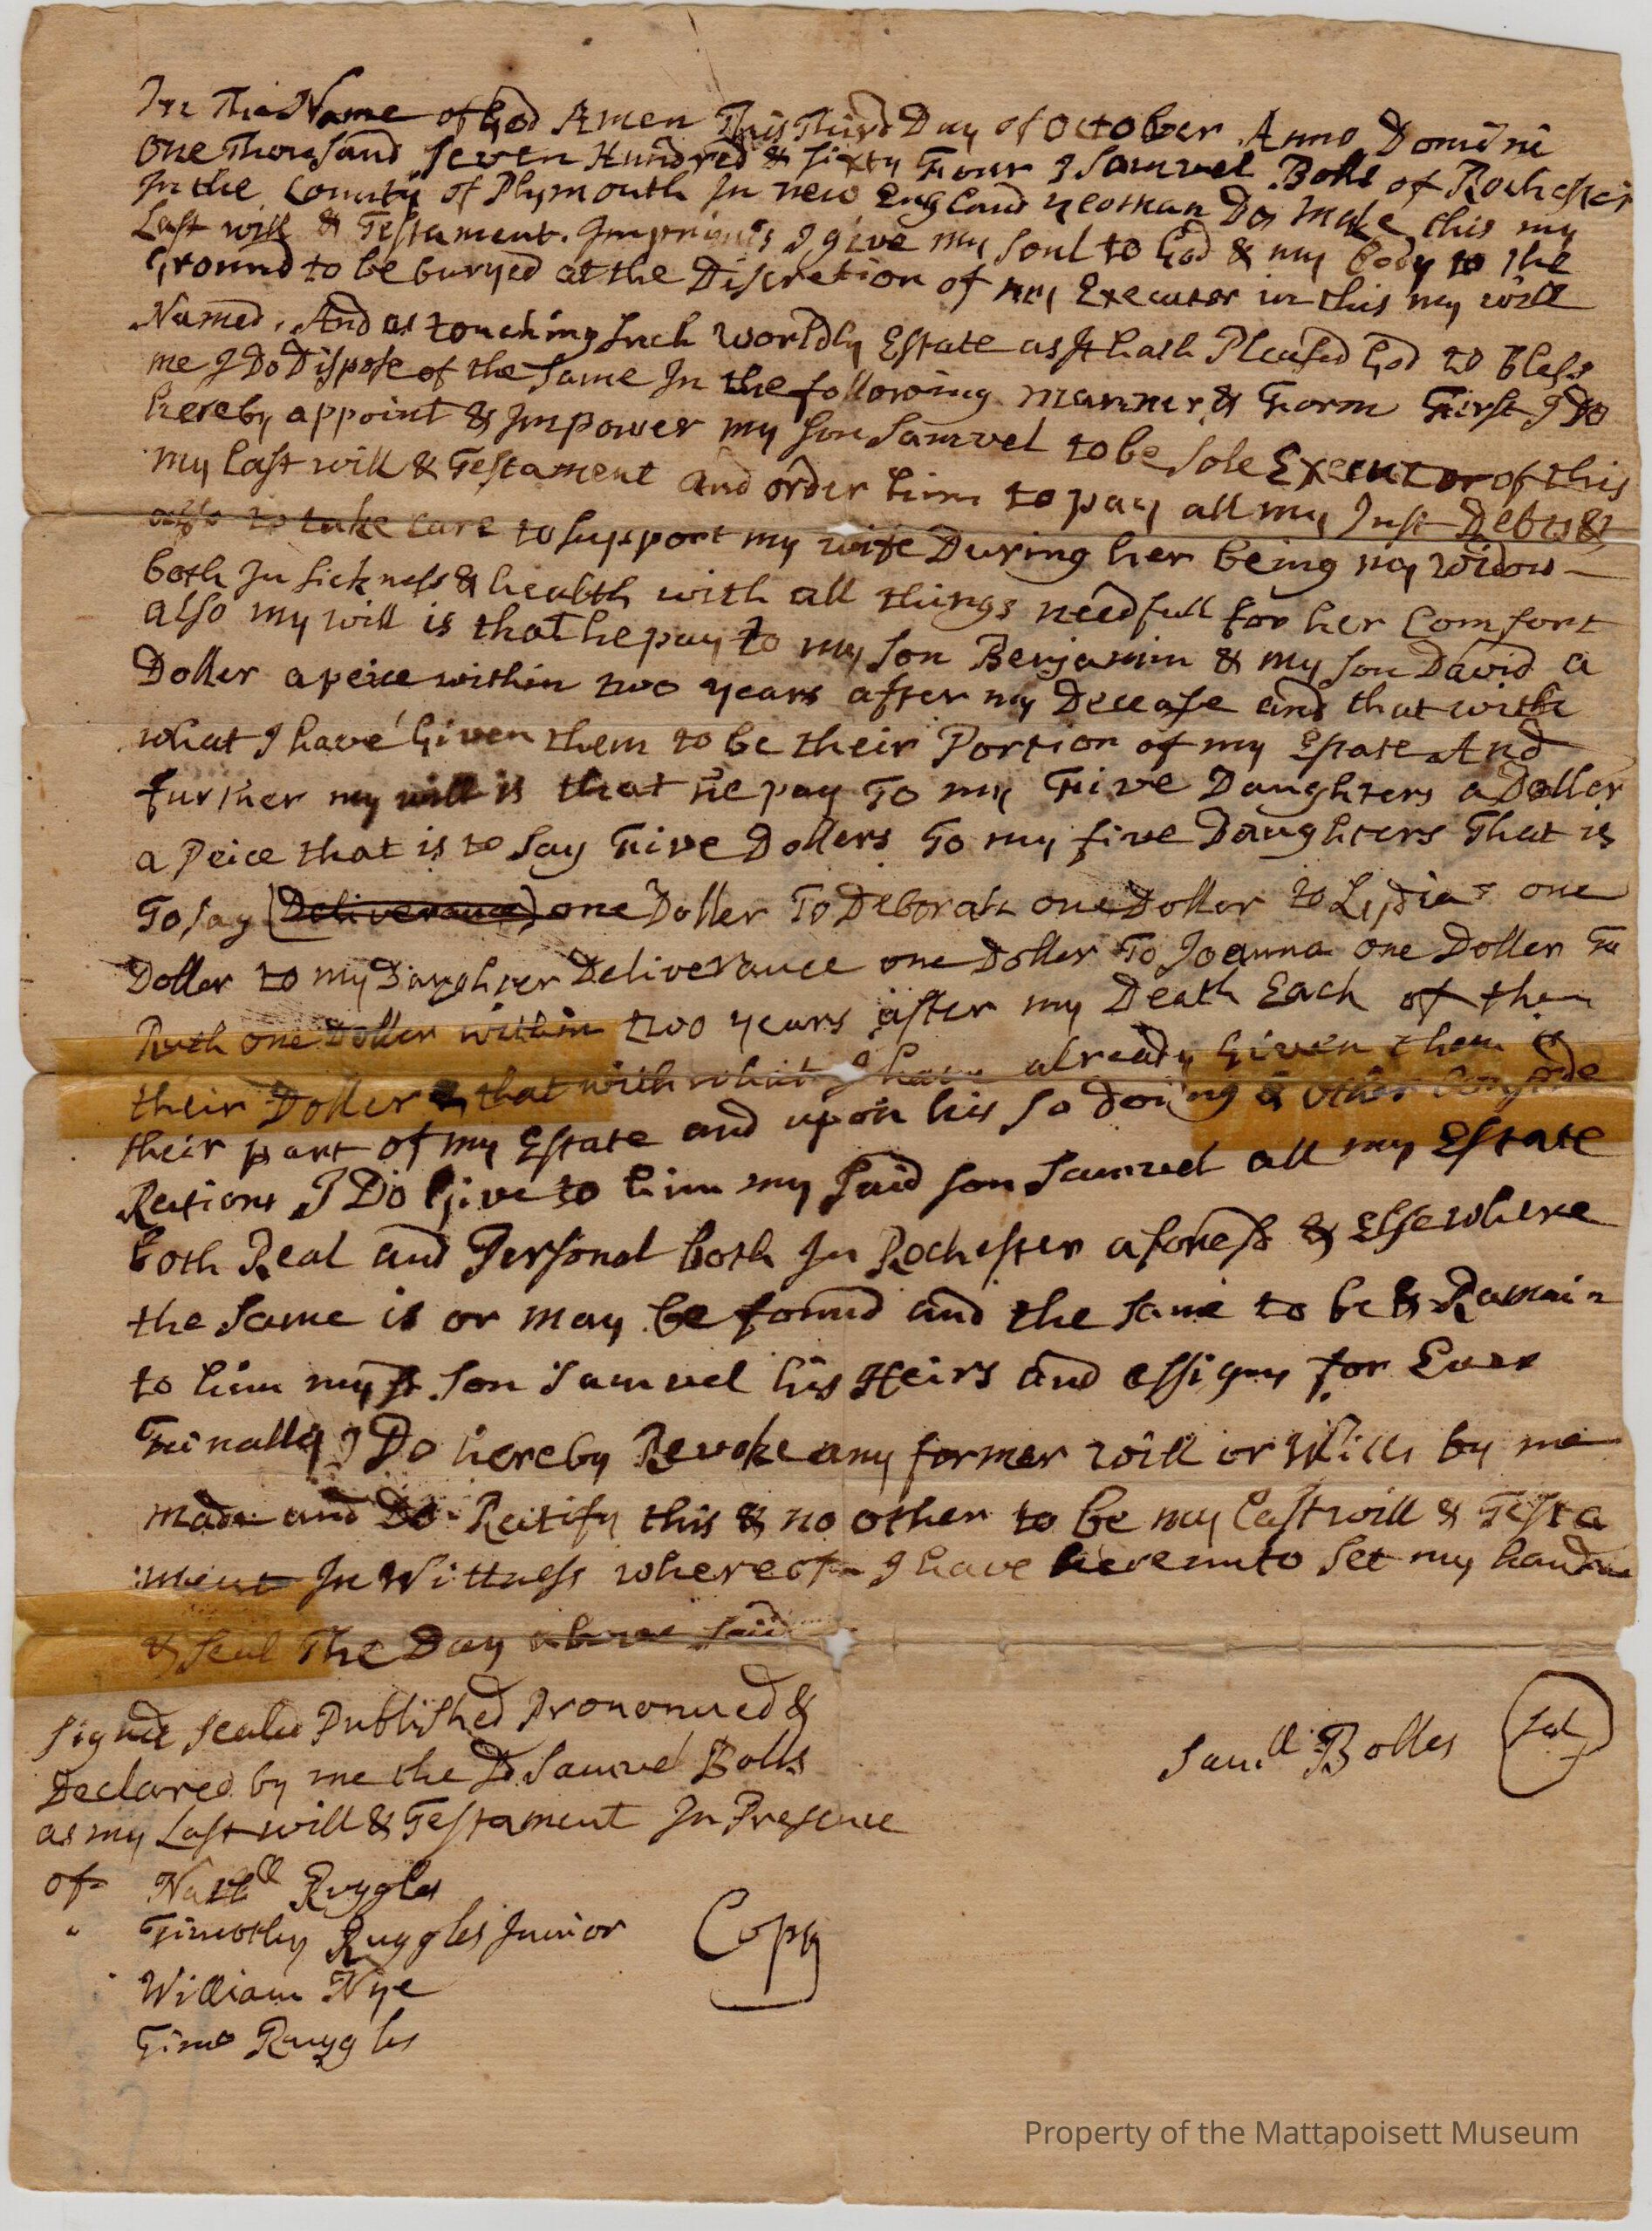 In The Name of God Amen This Third Day of October Anno Domini
One Thousand Seven Hundred & Sixty Four I Samuel Bolls of Rochester
In the County of Plymouth In new England yeoman Do make this my
Last will & Testament. Imprimis I give my Soul to God & my Body to the
Ground to be buryed at the Discretion of my Executor in this my will
Named, And as touching Such Worldly Estate as It hath Pleased God to Bless
me I Do Dispose of the Same In the following manner & Form First I Do
hereby appoint & Impower my Son Samuel to be Sole Executor of this
my last will & Testament and order him to pay all my Just Debts &
also to take care to Support my wife During her being my widow
both In Sickness & health with all things needfull for her Comfort
also my will is that he pay to my Son Benjamin & my Son David a
Doller a peice within two years after my Decease and that with
what I have Given them to be their Portion of my Estate And
further my will is that he pay To my Five Daughters a Doller
a Peice that is to Say Five Dollers To my five Daughters That is
To Say (Deliverance) one Doller To Deborah one Doller to Lydia one
Doller to my Daughter Deliverance one Doller To Joanna one Doller To
Ruth one Doller within two years after my Death Each of them
their Doller & that with what I have already Given them is
their part of my Estate and upon his So doing & other Conside
Rations I Do Give to him my Said Son Samuel all my Estate
both Real and Personal both In Rochester aforesd & Elsewhere
the Same is or may be found and the Same to be & Ramain
to him my sd Son Samuel his Heirs and assigns for Ever
Finally I Do hereby Revoke any former will or Wills by me
made and Do Ratify this & no other to be my Last will & Testa
:ment In Wittness whereof I have hereunto Set my hand
& Seal The Day above Said
Signed Sealed Published Pronounced &
Declared by me the sd Samuel Bolls
as my Last will & Testament In Presence
of Nathll Ruggles
" Timothy Ruggles Junior
William Nye
Timo Ruggles
Samll Bolles
Seal
Copy
Property of the Mattapoisett Museum